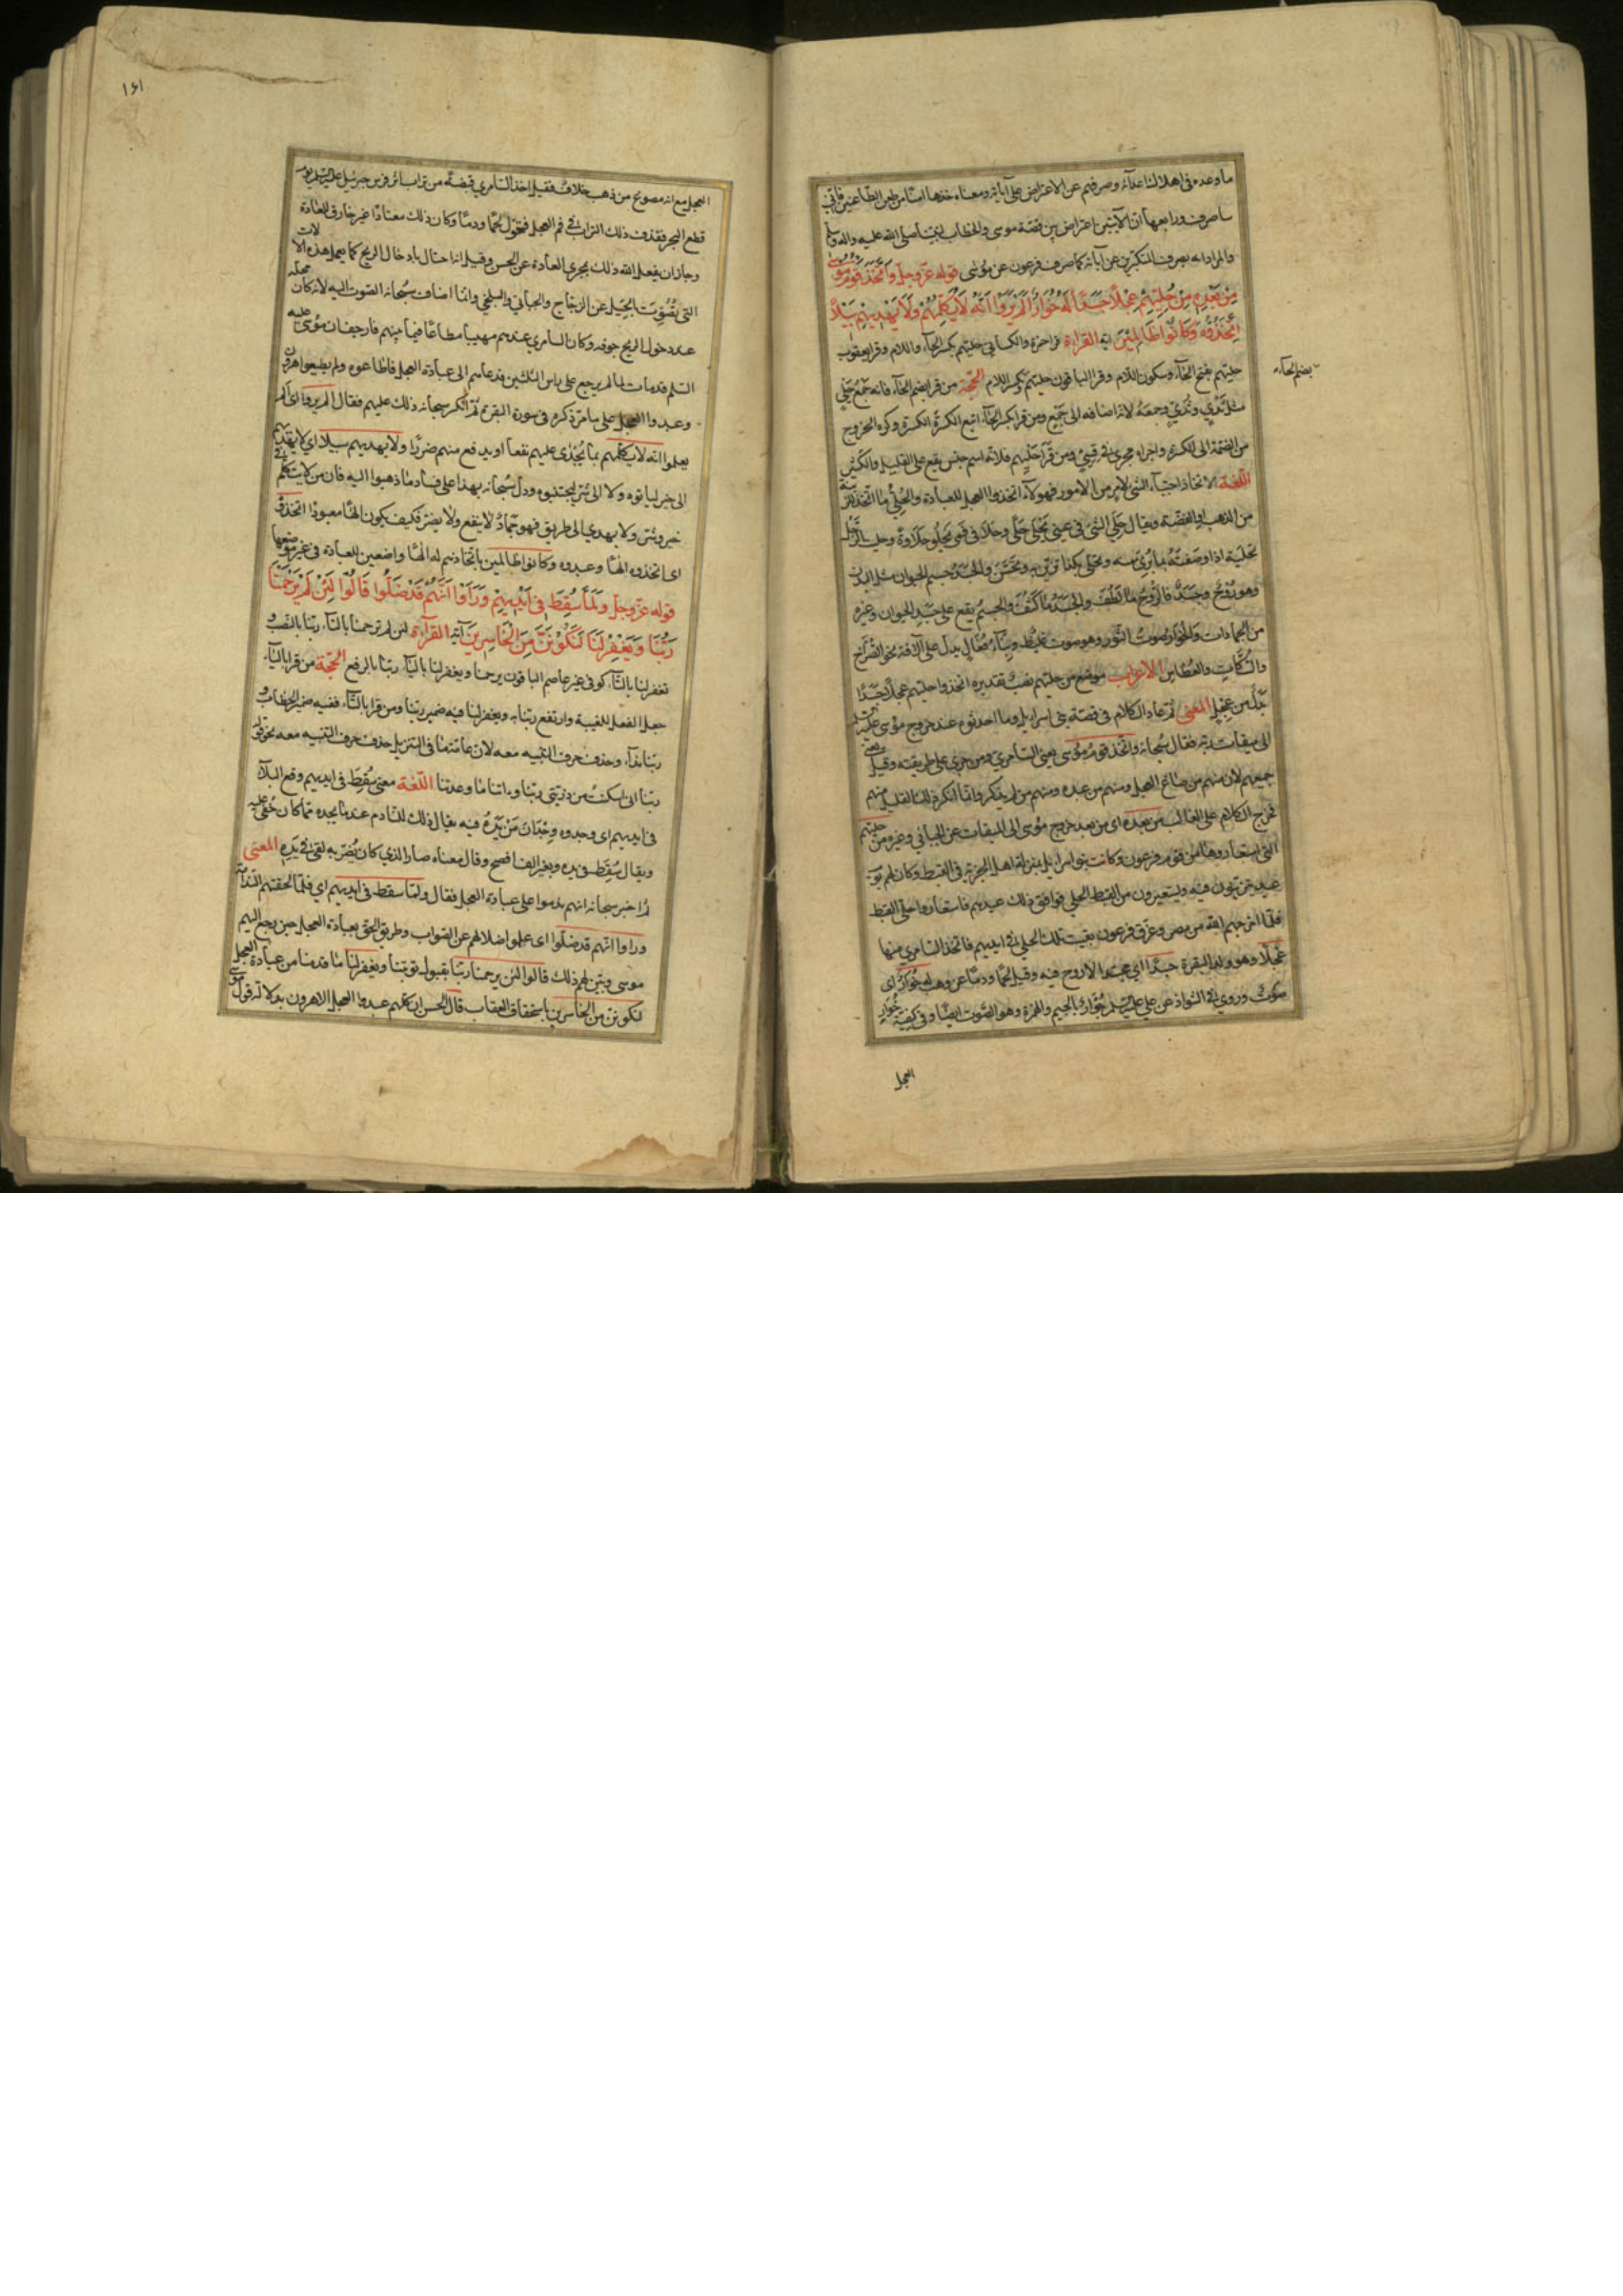 ما وعده فى اهلاك اعدائه وصرفهم عن الاعتراض على آياته ومعناه خذها آمنا من طعن الطاعنين فانى
ساصرف ورابعها ان الآيتين اعتراض بين قصة موسى والخطاب لنبينا صلى الله عليه واله وسلم
والمراد انه يصرف المتكبرين عن آياته كما صرف فرعون عن موسى قوله عز وجل وَاتَّخَذَ قَوْمُ مُوسٰى
مِنْ بَعْدِهِ مِنْ حُلِيِّهِمْ عِجْلًا جَسَدًا لَهُ خُوَارٌ اَلَمْ يَرَوْا اَنَّهُ لَا يُكَلِّمُهُمْ وَلَا يَهْدِيهِمْ سَبِيلًا
اِتَّخَذُوهُ وَكَانُوا ظَالِمِينَ آية القراءة قرا حمزة والكسائى حليهم بكسر الحاء واللام وقرا يعقوب
حليهم بفتح الحاء وسكون اللام وقرا الباقون حليهم بكسر اللام الحجة من قرا بضم الحاء فانه جمع حَلْيٍ
بضم الحاء
مثل ثَدْيٍ وثُدِيٍّ وجمعه لانه اضافه الى جمع ومن قرا بكسر الحاء اتبع الكسرة الكسرة وكره الخروج
من الضمة الى الكسرة واجراه مجرى قِسِىّ ومن قرا حَلْيِهم فلانه اسم جنس يقع على القليل والكثير
اللغة الاتخاذ اجتباء الشئ لامر من الامور فهولاء اتخذوا العجل للعبادة والحُلِىّ ما اتخذ للزينة
من الذهب او الفضة ويقال حَلِىَ الشئ فى عينى يَحْلٰى حَلًى وحلا فى فمى يحلو حلاوة وحليت الرجل
تحلية اذا وصفته بما يُرى منه وتحلى بكذا تزين به وتحسن والجسد جسم الحيوان مثل البدن
وهو روح وجسد فالروح ما لطف والجسد ما كثف والجسم يقع على جسد الحيوان وغيره
من الجمادات والخوار صوت الثور وهو صوت غليظ وبناء فُعَال يدل على الآفة نحو الصُّراخ
والسُّكات والعُطاس الاعراب موضع من حليهم نصب تقديره اتخذوا حليهم عجلا جسدا
بدل من عجل المعنى ثم عاد الكلام فى قصة بنى اسرائيل وما احدثوه عند خروج موسى عليه السلم
الى ميقات ربه فقال سبحانه واتخذ قوم موسى يعنى السامرى ومن جرى على طريقته وقيل يعنى
جميعهم لان منهم من صاغ العجل ومنهم من عبده ومنهم من لم ينكر وانما انكر ذلك القليل منهم
فخرج الكلام على الغالب من بعده اى من بعد خروج موسى الى الميقات عن الجبائى وغيره من حليهم
التى استعاروها من قوم فرعون وكانت بنو اسرائيل بمنزلة اهل الجزية فى القبط وكان لهم يوم
عيد يتزينون فيه ويستعيرون من القبط الحلى فوافق ذلك عيدهم فاستعاروا حلى القبط
فلما اخرجهم الله من مصر وغرق فرعون بقيت تلك الحلى فى ايديهم فاتخذ السامرى منها
عجلا وهو ولد البقرة جسدا اى مجسدا لا روح فيه وقيل لحما ودما عن وهب له خوار اى
صوت وروى فى الشواذ عن على عليه السلم جُؤار بالجيم والهمزة وهو الصوت ايضا وفى كيفية خوار
العجل
۱۶۱
العجل مع انه مصوغ من ذهب خلاف فقيل اخذ السامرى قبضة من تراب اثر فرس جبرئيل عليه السلم يوم
قطع البحر فقذف ذلك التراب فى فم العجل فتحول لحما ودما وكان ذلك معتادا غير خارق للعادة
وجاز ان يفعل الله ذلك بمجرى العادة عن الحسن وقيل انه احتال بادخال الريح كما يعمل هذه الالات
التى تُصَوِّت بالحيل عن الزجاج والجبائى والبلخى وانما اضاف سبحانه الصوت اليه لانه كان محله
عند دخول الريح جوفه وكان السامرى عندهم مهيبا مطاعا فيما بينهم فارجف ان موسى عليه
السلم قد مات لما لم يرجع على راس الثلثين فدعاهم الى عبادة العجل فاطاعوه ولم يطيعوا هرون
وعبدوا العجل على ما مر ذكره فى سورة البقرة ثم انكر سبحانه ذلك عليهم فقال الم يروا اى الم
يعلموا انه لا يكلمهم بما يجدى عليهم نفعا او يدفع منهم ضررا ولا يهديهم سبيلا اى لا يهديهم
الى خير لياتوه ولا الى شر ليجتنبوه ودل سبحانه بهذا على فساد ما ذهبوا اليه فان من لا يتكلم فى
خير وشر ولا يهدى الى طريق فهو جماد لا ينفع ولا يضر فكيف يكون الها معبودا اتخذوه
اى اتخذوه الها وعبدوه وكانوا ظالمين باتخاذهم له الها واضعين للعبادة فى غير موضعها
قوله عز وجل وَلَمَّا سُقِطَ فِى اَيْدِيهِمْ وَرَاَوْا اَنَّهُمْ قَدْ ضَلُّوا قَالُوا لَئِنْ لَمْ يَرْحَمْنَا
رَبُّنَا وَيَغْفِرْ لَنَا لَنَكُونَنَّ مِنَ الْخَاسِرِينَ آية القراءة لئن لم ترحمنا بالتاء ربنا بالنصب و
تغفر لنا بالتاء كوفى غير عاصم الباقون يرحمنا ويغفر لنا بالياء ربنا بالرفع الحجة من قرا بالياء
جعل الفعل للغيبة وارتفع ربنا به ويغفر لنا فيه ضمير ربنا ومن قرا بالتاء ففيه ضمير الخطاب و
ربنا نداء وحذف حرف التنبيه معه لان عامة ما فى التنزيل حذف حرف التنبيه معه نحو قوله
ربنا انى اسكنت من ذريتى ربنا واتنا ما وعدتنا اللغة معنى سُقِطَ فى ايديهم وقع البلاء
فى ايديهم اى وجدوه وجدان من يده فيه يقال ذلك للنادم عندما يجده مما كان خفى عليه
ويقال سُقِط فى يده وبغير الف افصح وقال معناه صار الذى كان يُضرّ به لقى فى يده المعنى
ثم اخبر سبحانه انهم ندموا على عبادة العجل فقال ولما سقط فى ايديهم اى فلما لحقتهم الندامة
وراوا انهم قد ضلوا اى علموا ضلالهم عن الصواب وطريق الحق بعبادة العجل حين رجع اليهم
موسى وبين لهم ذلك قالوا لئن يرحمنا ربنا بقبول توبتنا ويغفر لنا ما قدمنا من عبادة العجل
لنكونن من الخاسرين باستحقاق العقاب قال الحسن ان كلهم عبدوا العجل الا هرون بدلالة قول موسى